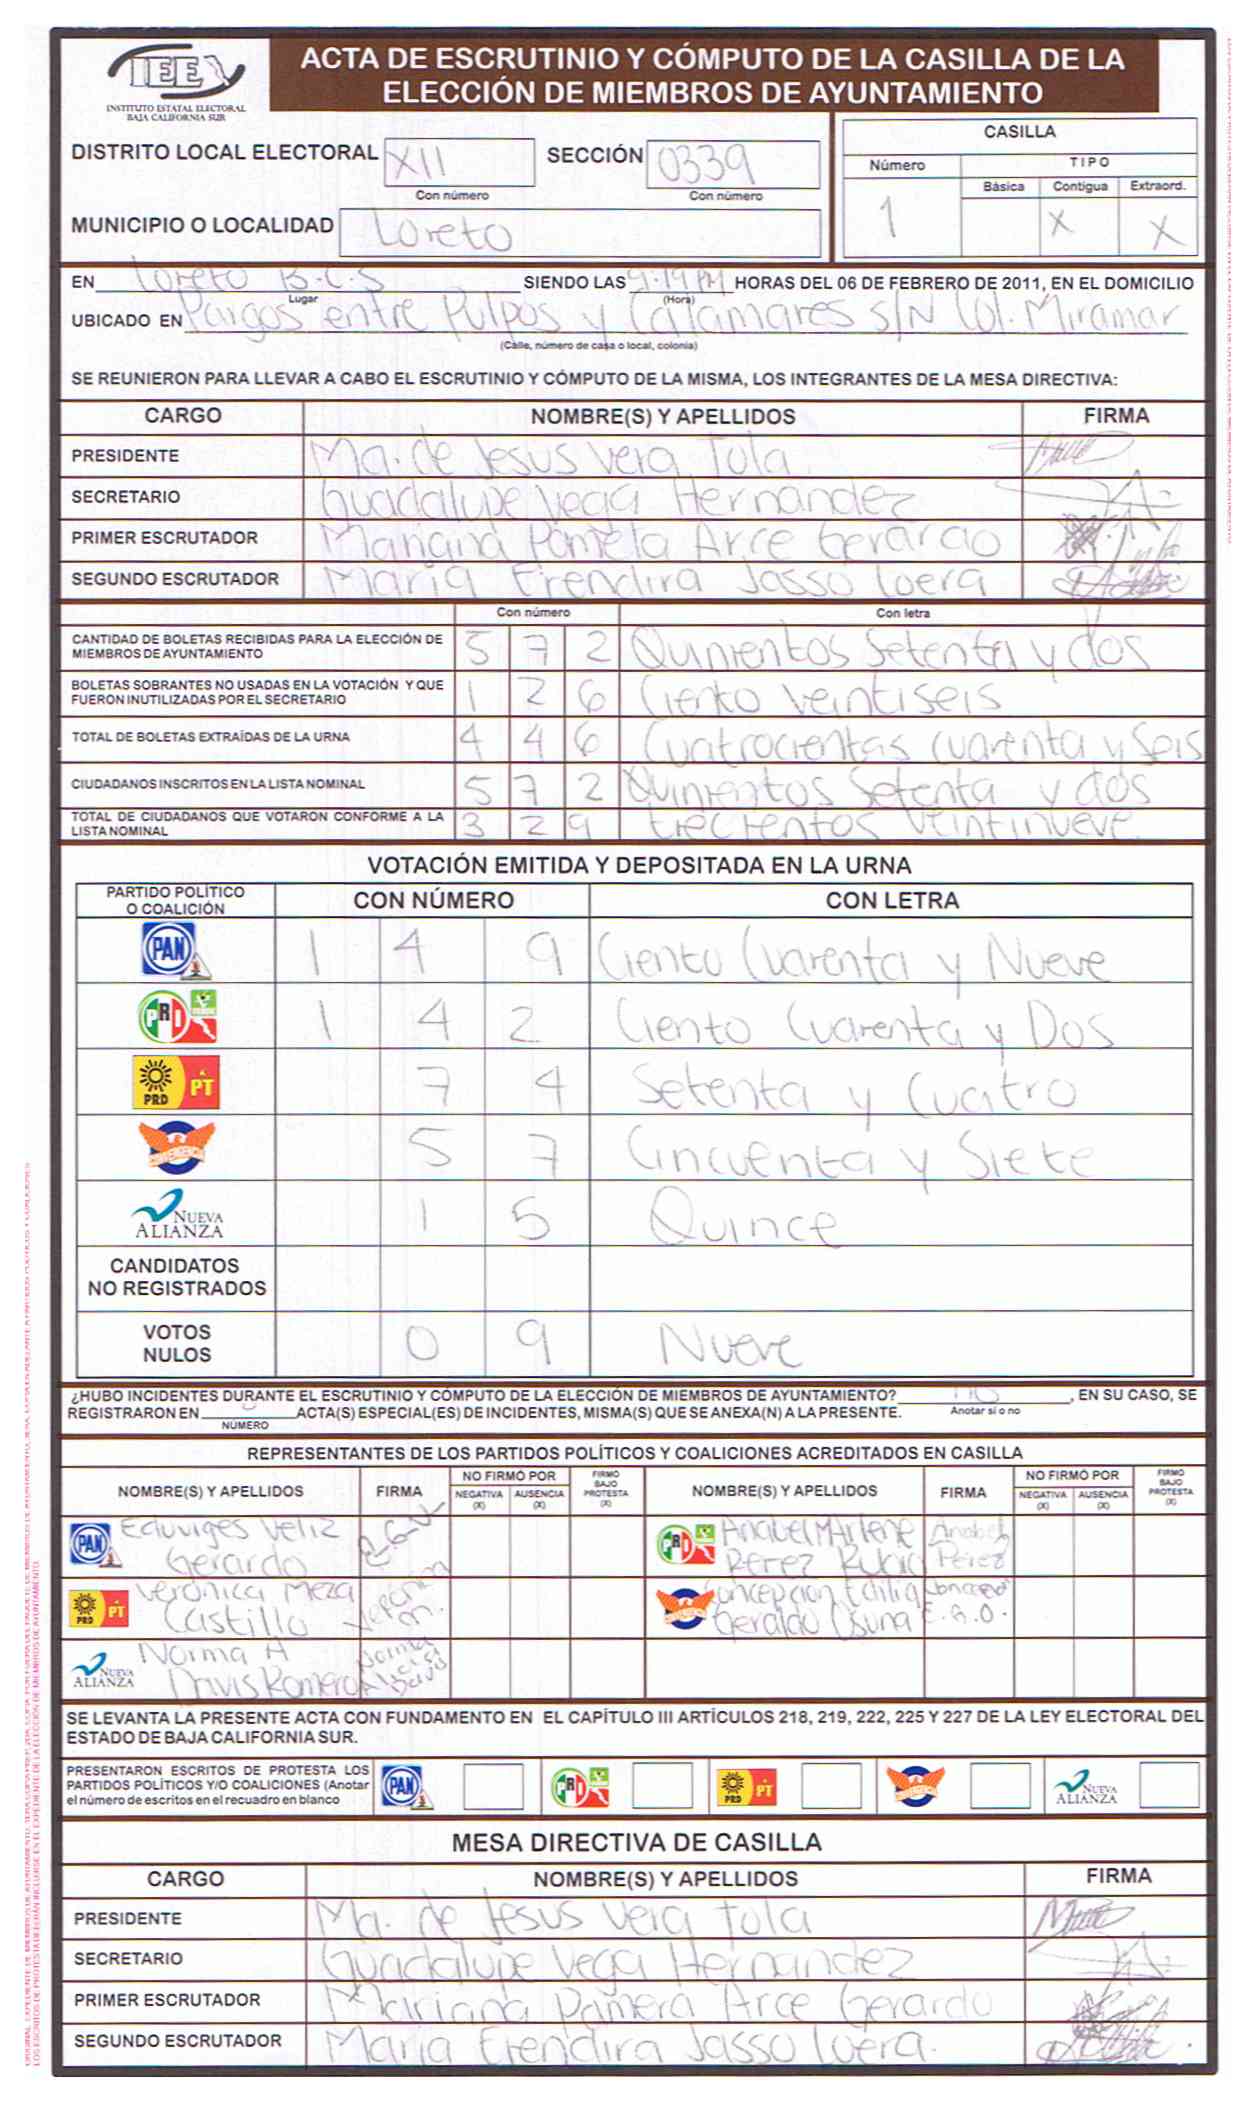 IEE
INSTITUTO ESTATAL ELECTORAL
BAJA CALIFORNIA SUR
ACTA DE ESCRUTINIO Y CÓMPUTO DE LA CASILLA DE LA
ELECCIÓN DE MIEMBROS DE AYUNTAMIENTO
DISTRITO LOCAL ELECTORAL XII SECCIÓN 0339
Con número Con número
MUNICIPIO O LOCALIDAD Loreto
CASILLA
Número TIPO
Básica Contigua Extraord.
1 X X
EN Loreto B.C.S SIENDO LAS 9:19 PM HORAS DEL 06 DE FEBRERO DE 2011, EN EL DOMICILIO
Lugar (Hora)
UBICADO EN Pargos entre Pulpos y Calamares S/N Col. Miramar
(Calle, número de casa o local, colonia)
SE REUNIERON PARA LLEVAR A CABO EL ESCRUTINIO Y CÓMPUTO DE LA MISMA, LOS INTEGRANTES DE LA MESA DIRECTIVA:
CARGO NOMBRE(S) Y APELLIDOS FIRMA
PRESIDENTE Ma. de Jesus Vera Tola
SECRETARIO Guadalupe Vega Hernandez
PRIMER ESCRUTADOR Mariana Pamela Arce Gerardo
SEGUNDO ESCRUTADOR Maria Erendira Jasso Loera
Con número Con letra
CANTIDAD DE BOLETAS RECIBIDAS PARA LA ELECCIÓN DE
MIEMBROS DE AYUNTAMIENTO 5 7 2 Quinientos Setenta y dos
BOLETAS SOBRANTES NO USADAS EN LA VOTACIÓN Y QUE
FUERON INUTILIZADAS POR EL SECRETARIO 1 2 6 Ciento Veintiseis
TOTAL DE BOLETAS EXTRAÍDAS DE LA URNA 4 4 6 Cuatrocientas Cuarenta y Seis
CIUDADANOS INSCRITOS EN LA LISTA NOMINAL 5 7 2 Quinientos Setenta y dos
TOTAL DE CIUDADANOS QUE VOTARON CONFORME A LA
LISTA NOMINAL 3 2 9 trecientos veintinueve
VOTACIÓN EMITIDA Y DEPOSITADA EN LA URNA
PARTIDO POLÍTICO
O COALICIÓN CON NÚMERO CON LETRA
PAN 1 4 9 Ciento Cuarenta y Nueve
PRI VERDE 1 4 2 Ciento Cuarenta y Dos
PRD PT 7 4 Setenta y Cuatro
CONVERGENCIA 5 7 Cincuenta y Siete
NUEVA ALIANZA 1 5 Quince
CANDIDATOS
NO REGISTRADOS
VOTOS
NULOS 0 9 Nueve
¿HUBO INCIDENTES DURANTE EL ESCRUTINIO Y CÓMPUTO DE LA ELECCIÓN DE MIEMBROS DE AYUNTAMIENTO? no, EN SU CASO, SE
REGISTRARON EN ACTA(S) ESPECIAL(ES) DE INCIDENTES, MISMA(S) QUE SE ANEXA(N) A LA PRESENTE. Anotar sí o no
NÚMERO
REPRESENTANTES DE LOS PARTIDOS POLÍTICOS Y COALICIONES ACREDITADOS EN CASILLA
NOMBRE(S) Y APELLIDOS FIRMA NO FIRMÓ POR NEGATIVA (X) AUSENCIA (X) FIRMÓ BAJO PROTESTA (X) NOMBRE(S) Y APELLIDOS FIRMA NO FIRMÓ POR NEGATIVA (X) AUSENCIA (X) FIRMÓ BAJO PROTESTA (X)
PAN Eduviges Veliz Gerardo E.G.V PRI Anabel Marlene Perez Rubio Anabel Pérez
PRD PT Verónica Meza Castillo Concepcion Edilia Geraldo Osuna E.G.O.
NUEVA ALIANZA Norma A Davis Romero
SE LEVANTA LA PRESENTE ACTA CON FUNDAMENTO EN EL CAPÍTULO III ARTÍCULOS 218, 219, 222, 225 Y 227 DE LA LEY ELECTORAL DEL
ESTADO DE BAJA CALIFORNIA SUR.
PRESENTARON ESCRITOS DE PROTESTA LOS
PARTIDOS POLÍTICOS Y/O COALICIONES (Anotar
el número de escritos en el recuadro en blanco
PAN PRI PRD PT NUEVA ALIANZA
MESA DIRECTIVA DE CASILLA
CARGO NOMBRE(S) Y APELLIDOS FIRMA
PRESIDENTE Ma. de Jesus Vera Tola
SECRETARIO Guadalupe Vega Hernandez
PRIMER ESCRUTADOR Mariana Pamela Arce Gerardo
SEGUNDO ESCRUTADOR Maria Erendira Jasso Loera.